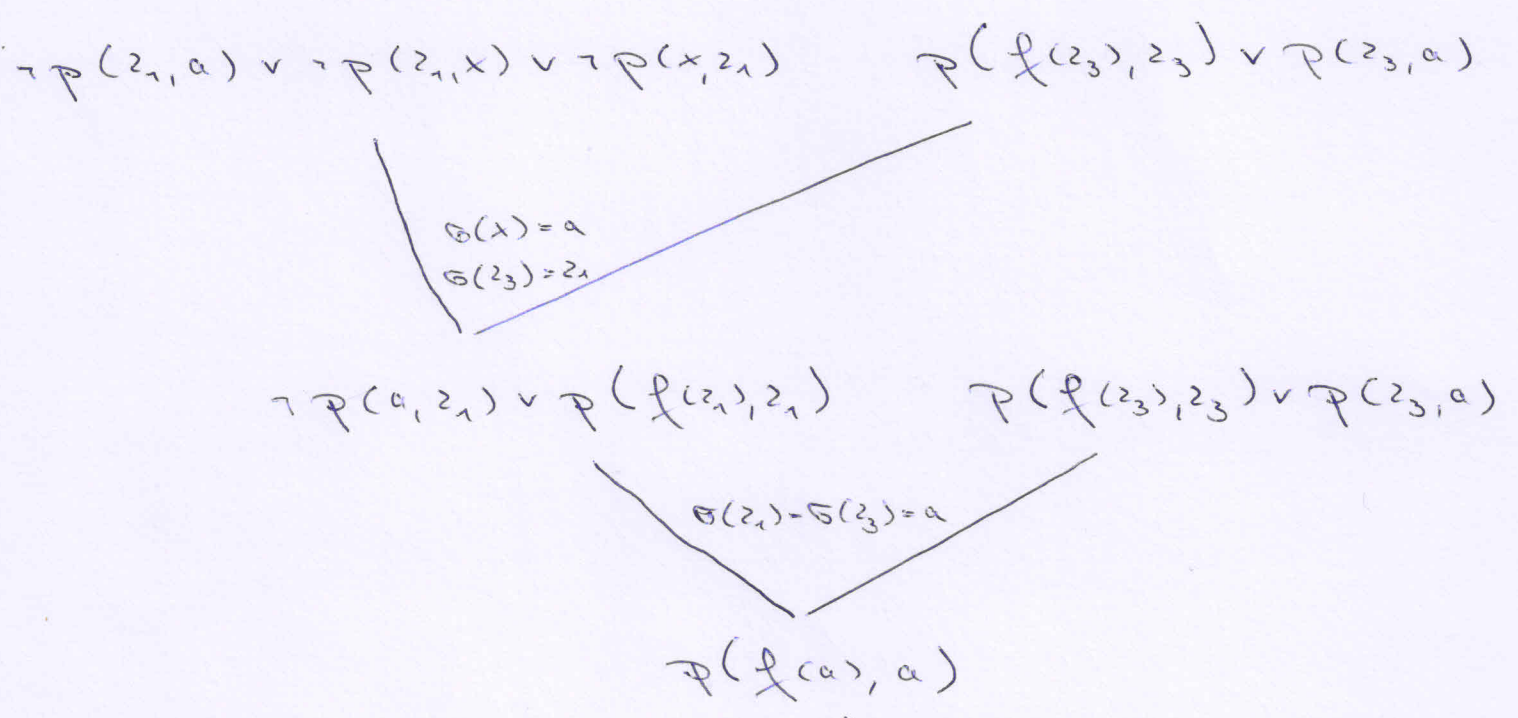 ¬p(z₁,a) ∨ ¬p(z₁,x) ∨ ¬p(x,z₁) p(f(z₃),z₃) ∨ p(z₃,a)
σ(x)=a
σ(z₃)=z₁
¬p(a,z₁) ∨ p(f(z₁),z₁) p(f(z₃),z₃) ∨ p(z₃,a)
σ(z₁)=σ(z₃)=a
p(f(a),a)